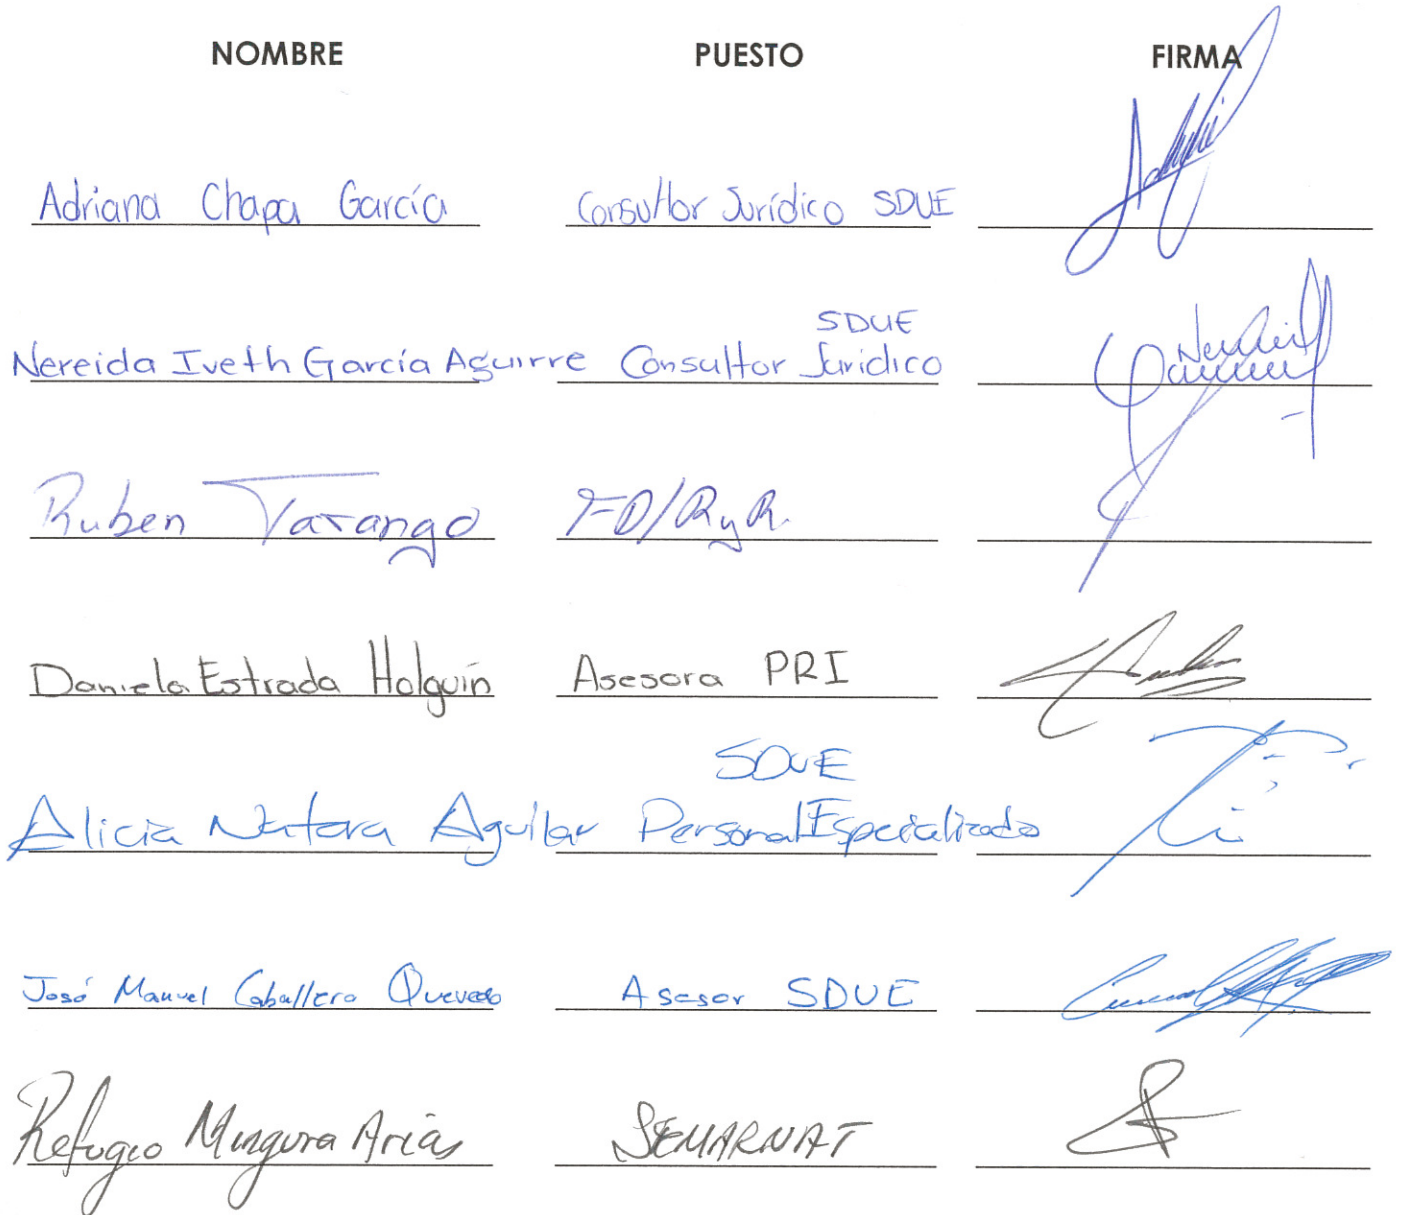 NOMBRE PUESTO FIRMA
Adriana Chapa García Consultor Jurídico SDUE
SDUE
Nereida Iveth García Aguirre Consultor Juridico
Ruben Tarango RyR.
Daniela Estrada Holguín Asesora PRI
SDUE
Alicia Aguilar Personal Especializado
José Manuel Caballero Quevedo Asesor SDUE
Refugio Arias SEMARNAT